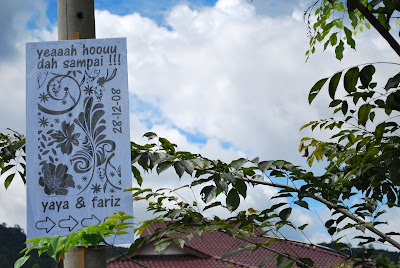 yeaaah hoouu
dah sampai !!!
28-12-08
yaya & fariz